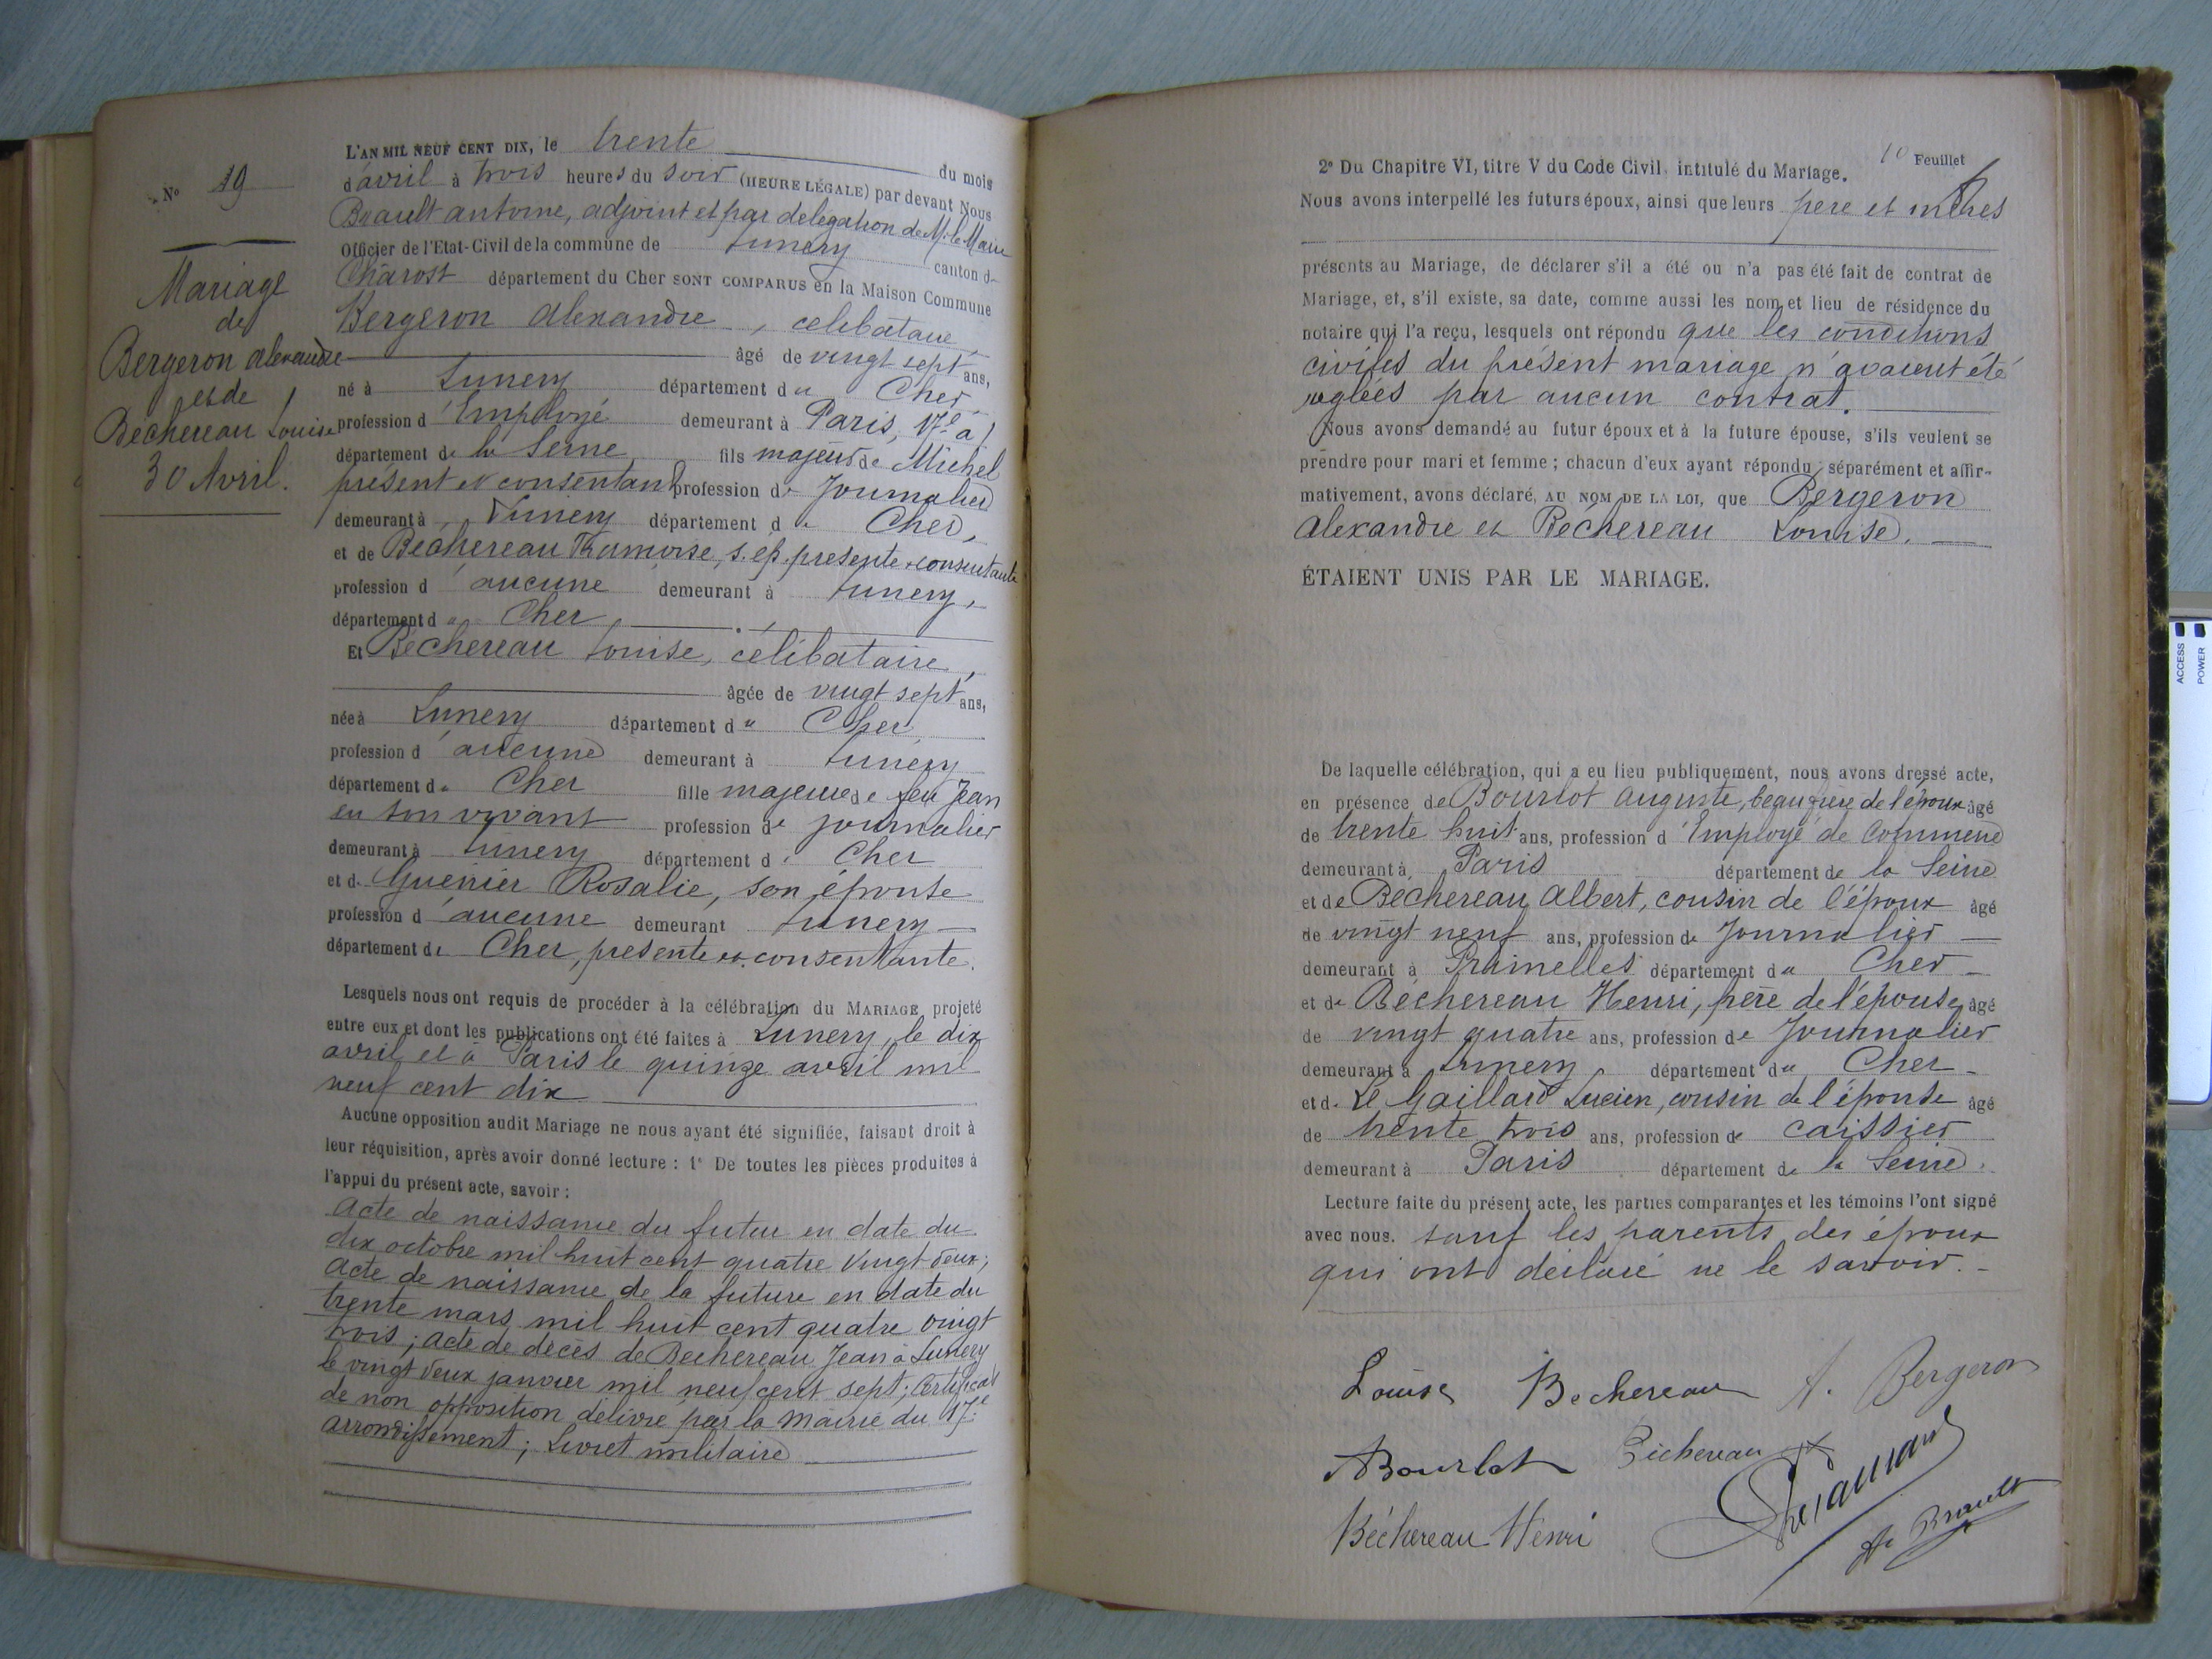 N° 19
Mariage
de
Bergeron Alexandre
et de
Béchereau Louise
30 Avril.
L'AN MIL NEUF CENT DIX, le trente du mois
d'avril à trois heures du soir (HEURE LÉGALE) par devant Nous
Brault antoine, adjoint et par délégation de M. le Maire
Officier de l'Etat-Civil de la commune de Lunery canton d
Chârost département du Cher SONT COMPARUS en la Maison Commune
Bergeron Alexandre, célibataire,
âgé de vingt sept ans,
né à Lunery département du Cher,
profession d'Employé demeurant à Paris, 17e a
département de la Seine fils majeur de Michel
présent et consentant profession de Journalier
demeurant à Lunery département d Cher,
et de Béchereau Françoise, s. ép. présente & consentante
profession d'aucune demeurant à Lunery,
département du Cher.
Et Béchereau Louise, célibataire,
âgée de vingt sept ans,
née à Lunery département du Cher,
profession d'aucune demeurant à Lunery
département du Cher fille majeure de feu Jean
en son vivant profession de journalier
demeurant à Lunery département d Cher
et d Guenier Rosalie, son épouse
profession d'aucune demeurant Lunery
département d Cher, présente et consentante.
Lesquels nous ont requis de procéder à la célébration du MARIAGE projeté
entre eux et dont les publications ont été faites à Lunery, le dix
avril et à Paris le quinze avril mil
neuf cent dix
Aucune opposition audit Mariage ne nous ayant été signifiée, faisant droit à
leur réquisition, après avoir donné lecture : 1° De toutes les pièces produites à
l'appui du présent acte, savoir :
Acte de naissance du futur en date du
dix octobre mil huit cent quatre vingt deux;
acte de naissance de la future en date du
trente mars mil huit cent quatre vingt
trois; acte de décès de Béchereau Jean à Lunery
le vingt deux janvier mil neuf cent sept; Certificat
de non opposition délivré par la Mairie du 17e
arrondissement; Livret militaire
10 Feuillet
2° Du Chapitre VI, titre V du Code Civil, intitulé du Mariage.
Nous avons interpellé les futurs époux, ainsi que leurs père et mères
présents au Mariage, de déclarer s'il a été ou n'a pas été fait de contrat de
Mariage, et, s'il existe, sa date, comme aussi les nom et lieu de résidence du
notaire qui l'a reçu, lesquels ont répondu que les conditions
civiles du présent mariage n'avaient été
réglées par aucun contrat.
Nous avons demandé au futur époux et à la future épouse, s'ils veulent se
prendre pour mari et femme ; chacun d'eux ayant répondu séparément et affir-
mativement, avons déclaré, AU NOM DE LA LOI, que Bergeron
Alexandre et Béchereau Louise.
ÉTAIENT UNIS PAR LE MARIAGE.
De laquelle célébration, qui a eu lieu publiquement, nous avons dressé acte,
en présence de Bourlot Auguste, beau frère de l'époux âgé
de trente huit ans, profession d'Employé de Commerce
demeurant à Paris département de la Seine
et de Béchereau Albert, cousin de l'époux âgé
de vingt neuf ans, profession de Journalier
demeurant à Primelles département du Cher
et de Béchereau Henri, père de l'épouse, âgé
de vingt quatre ans, profession de Journalier
demeurant à Lunery département du Cher
et d Le Gaillard Lucien, cousin de l'épouse âgé
de trente trois ans, profession de caissier
demeurant à Paris département de la Seine.
Lecture faite du présent acte, les parties comparantes et les témoins l'ont signé
avec nous. sauf les parents des époux
qui ont déclaré ne le savoir.
Louise Bechereau A. Bergeron
ABourlot Béchereau
Béchereau Henri
A. Brault
ACCESS
POWER